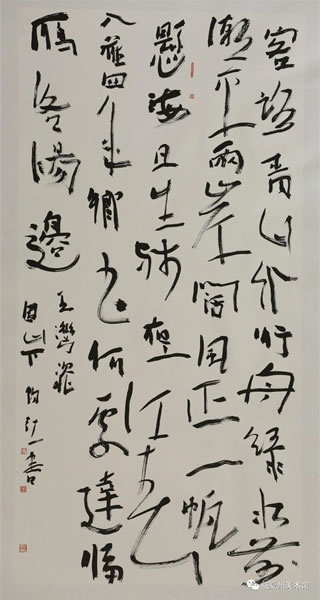 客路青山外行舟綠水前
潮平兩岸闊風正一帆
懸海日生殘夜江春
入舊年鄉書何處達歸
雁洛陽邊
王灣次北
固山下 書
州美术馆